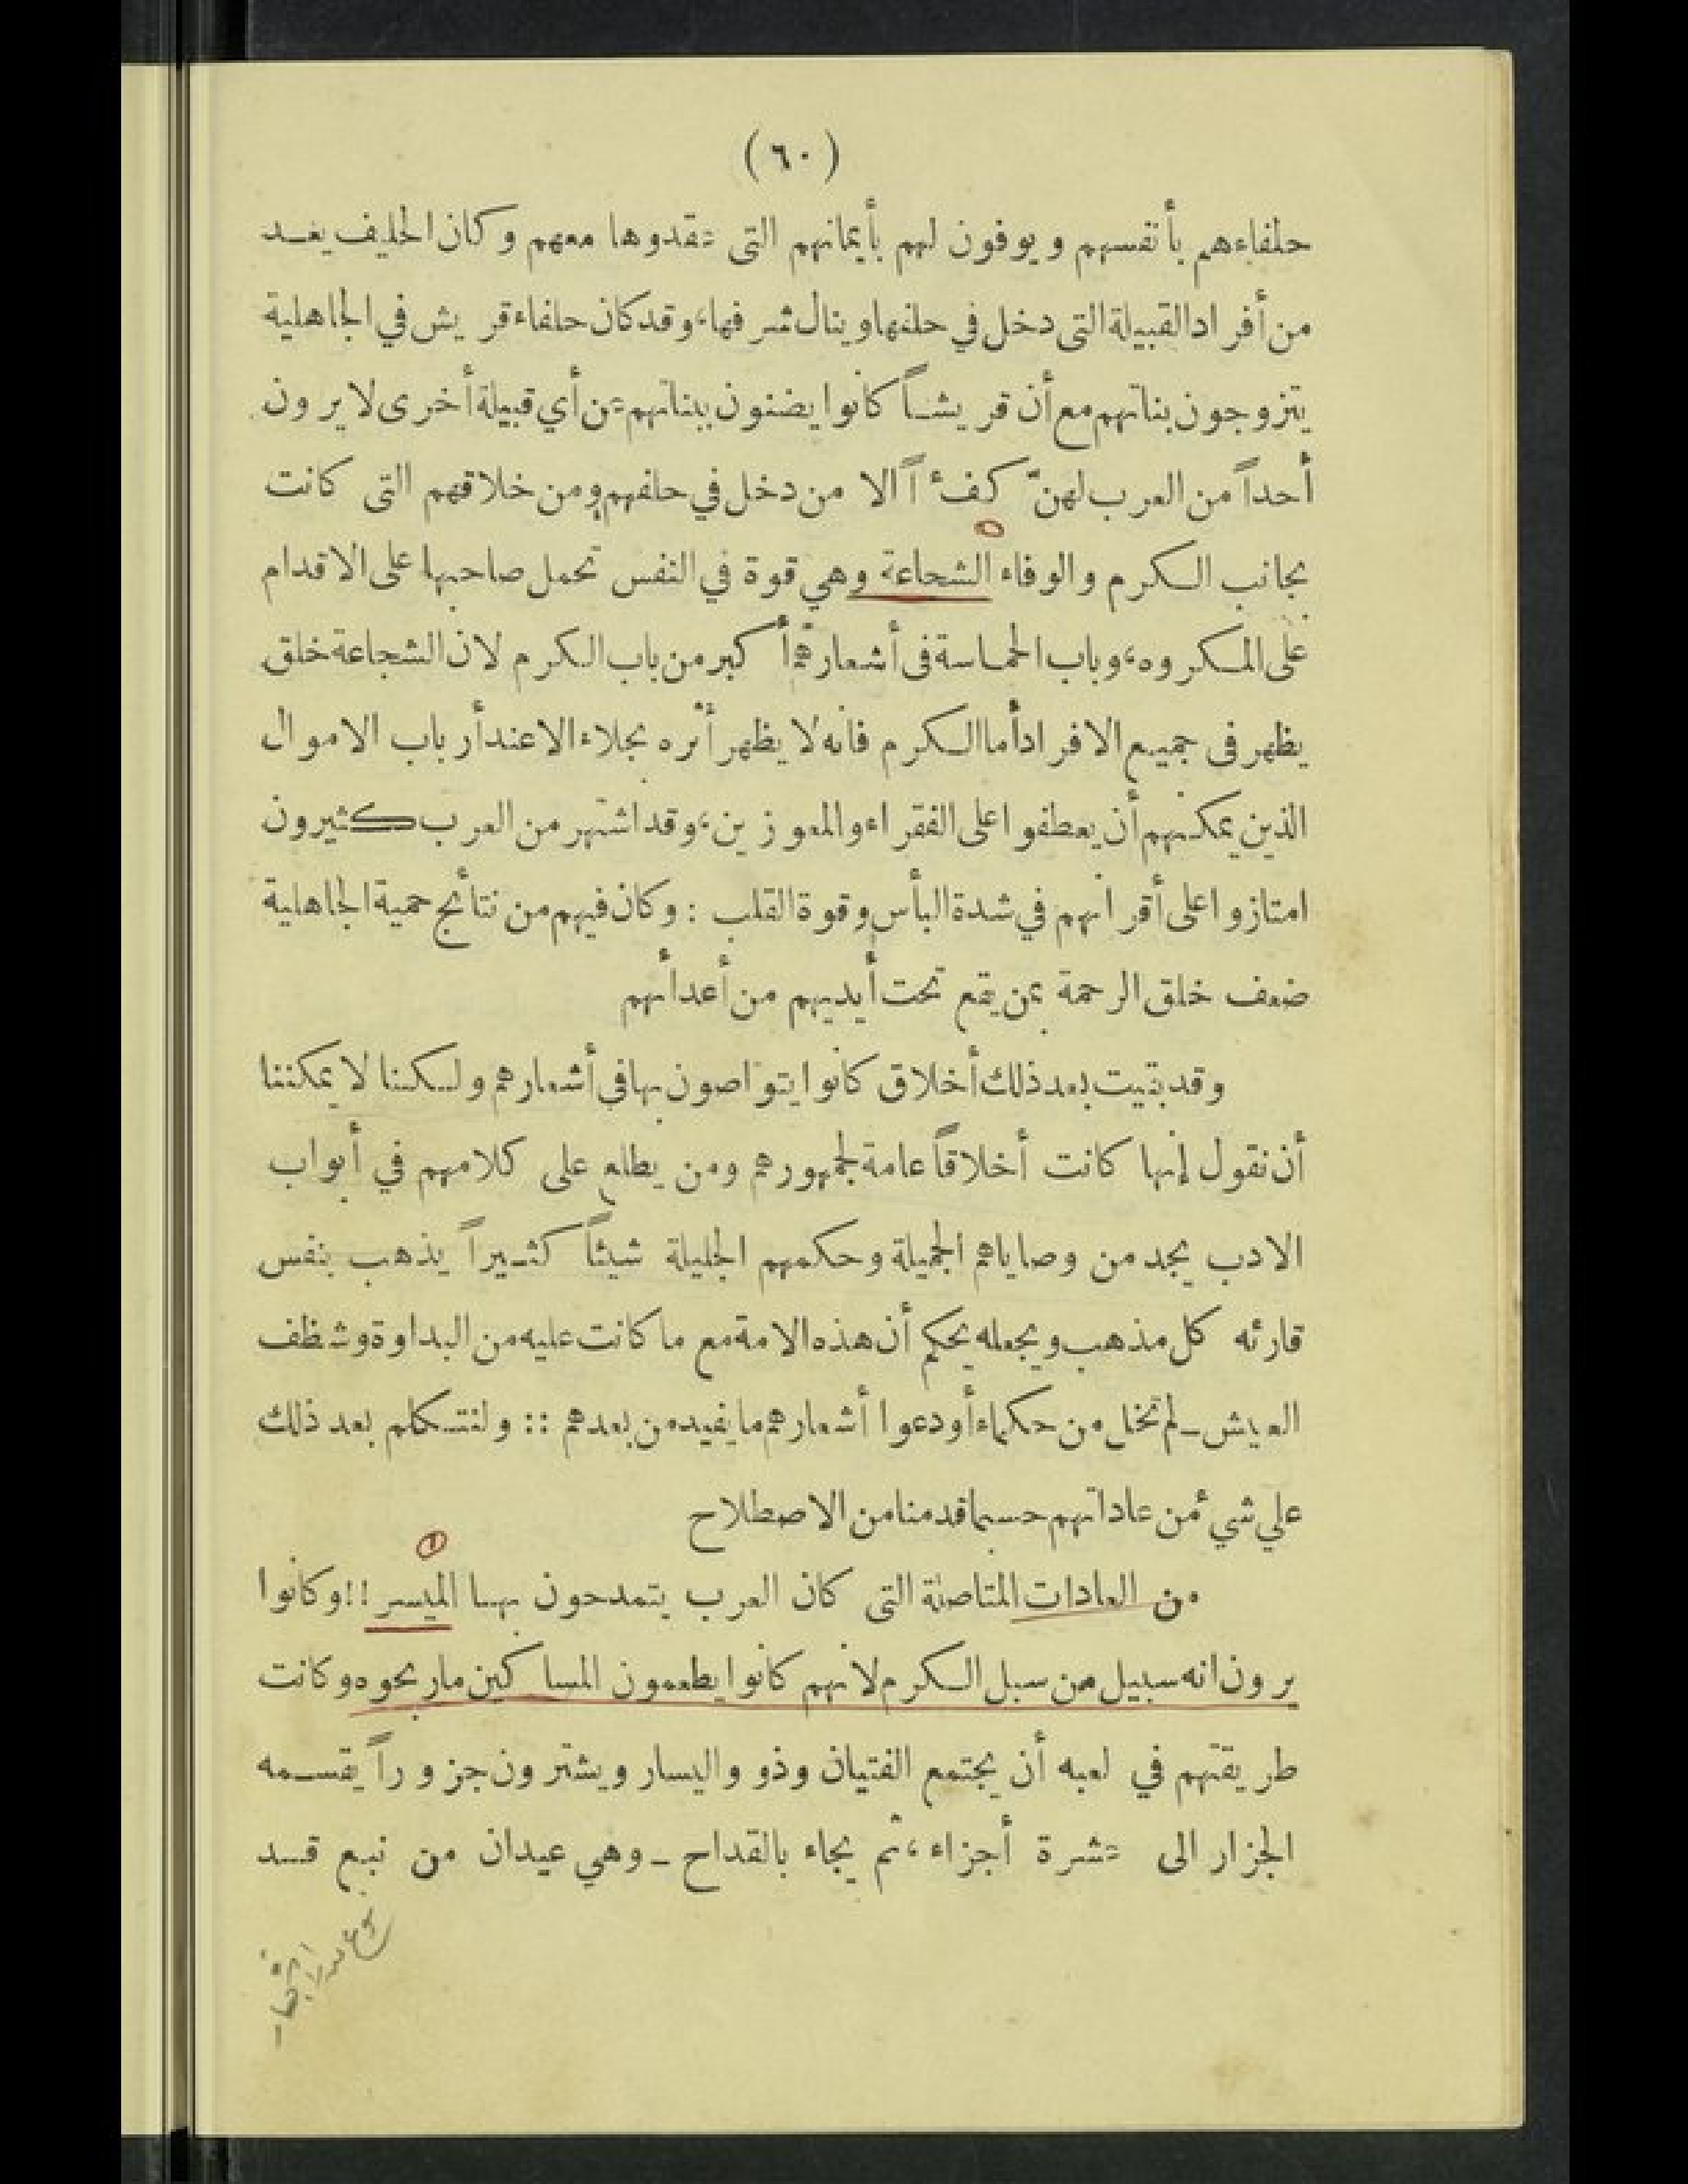 (٦٠)
حلفاءهم بأنفسهم ويوفون لهم بأيمانهم التى عقدوها معهم وكان الحليف يعد
من أفراد القبيلة التى دخل في حلفها وينال شرفها، وقد كان حلفاء قريش في الجاهلية
يتزوجون بناتهم مع أن قريشاً كانوا يضنون ببناتهم عن أي قبيلة أخرى لا يرون
أحداً من العرب لهنّ كفئاً الا من دخل في حلفهم ومن خلاقهم التى كانت
بجانب الكرم والوفاء الشجاعة وهي قوة في النفس تحمل صاحبها على الاقدام
على المكروه، وباب الحماسة فى أشعارهم أكبر من باب الكرم لان الشجاعة خلق
يظهر فى جميع الافراد أما الكرم فانه لا يظهر أثره بجلاء الا عند أرباب الاموال
الذين يمكنهم أن يعطفوا على الفقراء والمعوزين، وقد اشتهر من العرب كثيرون
امتازوا على أقرانهم في شدة البأس وقوة القلب : وكان فيهم من نتائج حمية الجاهلية
ضعف خلق الرحمة بمن يقع تحت أيديهم من أعدائهم
وقد بقيت بعد ذلك أخلاق كانوا يتواصون بها في أشعارهم ولكننا لا يمكننا
أن نقول إنها كانت أخلاقاً عامة لجمهورهم ومن يطلع على كلامهم في أبواب
الادب يجد من وصاياهم الجميلة وحكمهم الجليلة شيئاً كثيراً يذهب بنفس
قارئه كل مذهب ويجعله يحكم أن هذه الامة مع ما كانت عليه من البداوة وشظف
العيش ـ لم تخل من حكماء أودعوا أشعارهم ما يفيد من بعدهم :: ولنتكلم بعد ذلك
علي شيء من عاداتهم حسبما قدمنا من الاصطلاح
من العادات المتاصلة التى كان العرب يتمدحون بها الميسر !! وكانوا
يرون انه سبيل من سبل الكرم لانهم كانوا يطعمون المساكين ما ربحوه وكانت
طريقتهم في لعبه أن يجتمع الفتيان وذوو اليسار ويشترون جزوراً يقسمه
الجزار الى عشرة أجزاء، ثم يجاء بالقداح ـ وهي عيدان من نبع قد